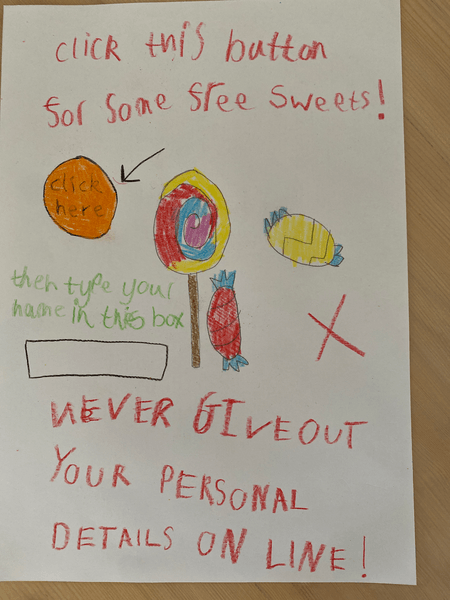 click this button
for some free sweets!
click
here
then type your
name in this box
NEVER GIVE OUT
YOUR PERSONAL
DETAILS ON LINE!